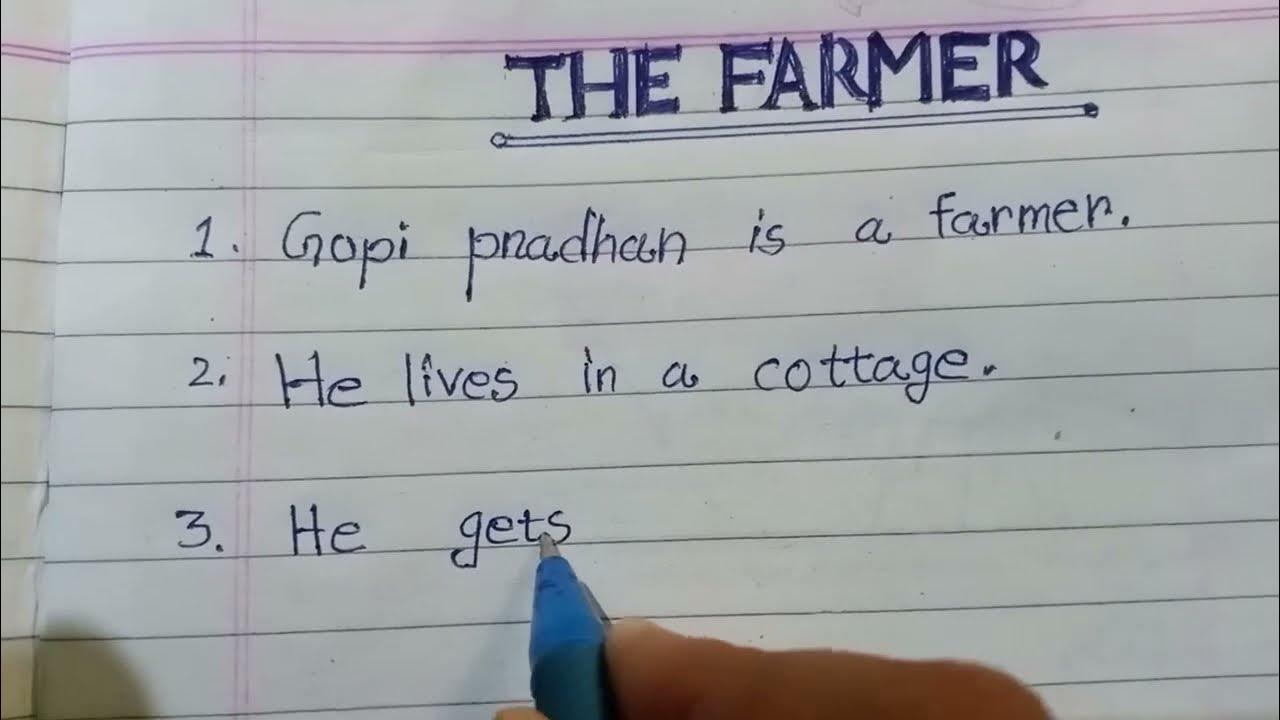 THE FARMER
1. Gopi pradhan is a farmer.
2. He lives in a cottage.
3. He gets